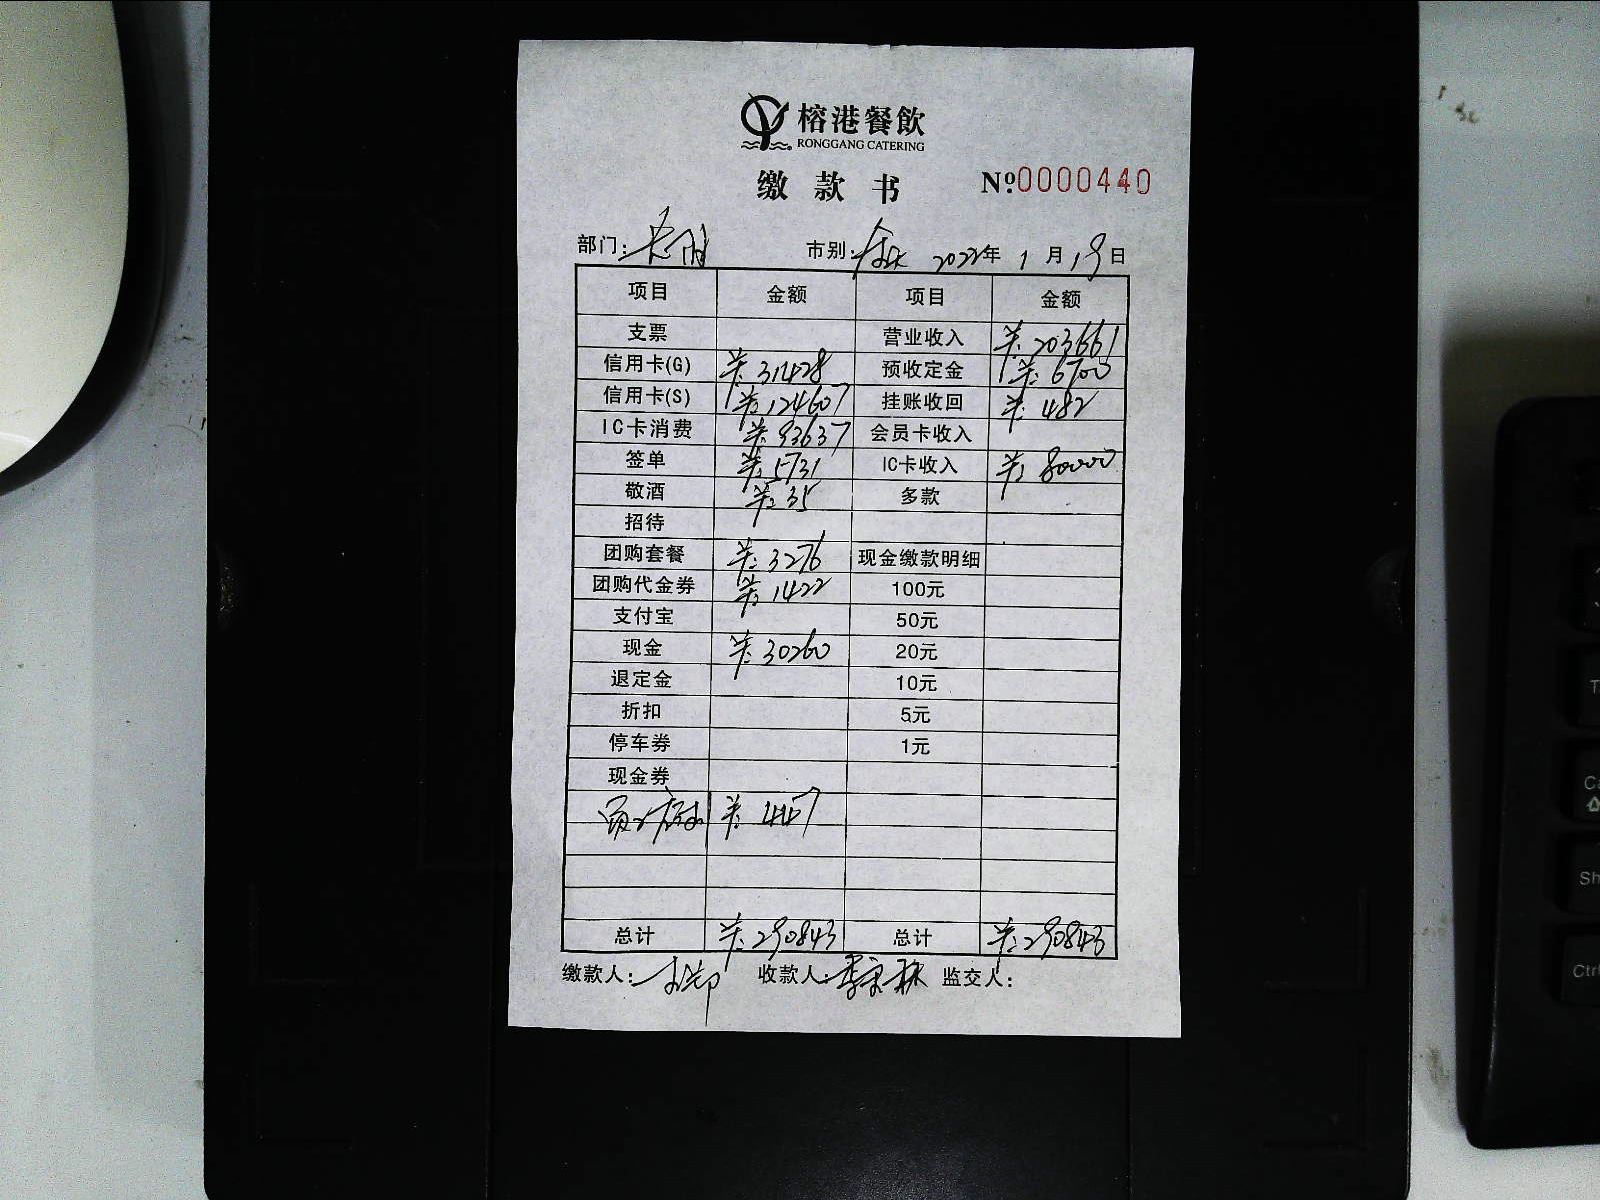 榕港餐飲
RONGGANG CATERING
缴款书 Nº0000440
部门: 市别: 2022年 1月19日
项目 金额 项目 金额
支票 营业收入 ¥:203661
信用卡(G) ¥:31428 预收定金 ¥:6700
信用卡(S) ¥:124607 挂账收回 ¥:482
IC卡消费 ¥:93637 会员卡收入
签单 ¥:5731 IC卡收入 ¥:80000
敬酒 ¥:35 多款
招待
团购套餐 ¥:3276 现金缴款明细
团购代金券 ¥:1422 100元
支付宝 50元
现金 ¥:30260 20元
退定金 10元
折扣 5元
停车券 1元
现金券
¥:447
总计 ¥:290843 总计 ¥:290843
缴款人: 收款人: 监交人:
Ctrl